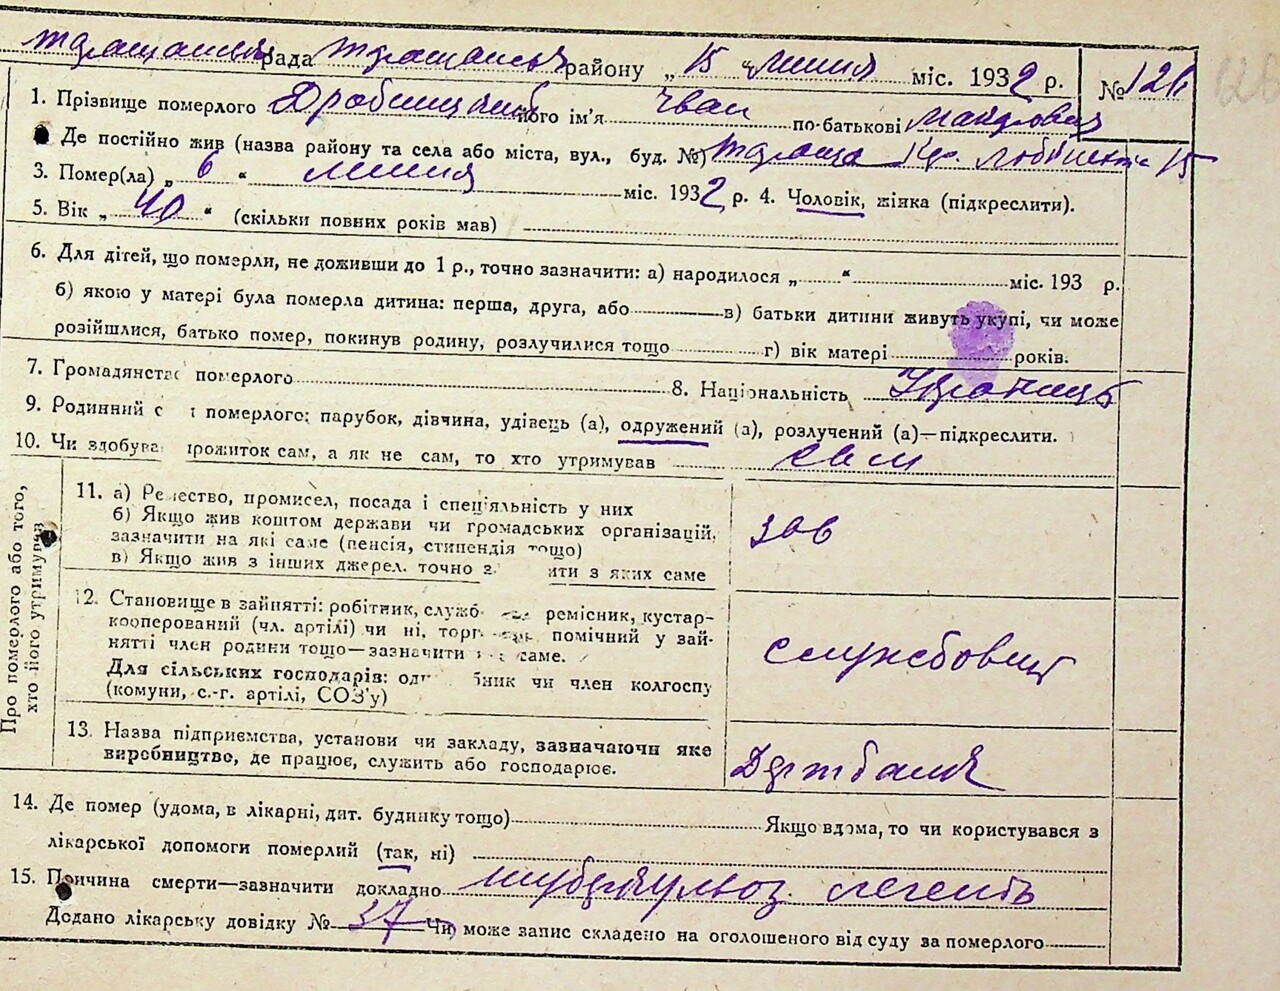 Таращанська рада Таращанського району „15 “ липня міс. 1932 р. № 126
1. Прізвище померлого його ім'я Іван по-батькові
Де постійно жив (назва району та села або міста, вул., буд. №) Тараща 15
3. Помер(ла) „ 6 “ липня міс. 1932 р. 4. Чоловік, жінка (підкреслити).
5. Вік „ 40 “ (скільки повних років мав)
6. Для дітей, що померли, не доживши до 1 р., точно зазначити: а) народилося „ “ міс. 193 р.
б) якою у матері була померла дитина: перша, друга, або в) батьки дитини живуть укупі, чи може
розійшлися, батько помер, покинув родину, розлучилися тощо г) вік матері років.
7. Громадянств померлого 8. Національність Українець
9. Родинний с померлого: парубок, дівчина, удівець (а), одружений (а), розлучений (а)—підкреслити.
10. Чи здобува прожиток сам, а як не сам, то хто утримував сам
Про померлого або того, хто його утримував
11. а) Ре ество, промисел, посада і спеціяльність у них
б) Якщо жив коштом держави чи громадських організацій,
зазначити на які саме (пенсія, стипендія тощо)
в) Якщо жив з інших джерел. точно з ити з яких саме
зав
12. Становище в зайнятті: робітник, служб ремісник, кустар-
кооперований (чл. артілі) чи ні, торг помічний у зай-
нятті член родини тощо—зазначити саме.
Для сільських господарів: од бник чи член колгоспу
(комуни, с.-г. артілі, СОЗ'у)
службовець
13. Назва підприємства, установи чи закладу, зазначаючи яке
виробництво, де працює, служить або господарює.
Держбанк
14. Де помер (удома, в лікарні, дит. будинку тощо) Якщо вдома, то чи користувався з
лікарської допомоги померлий (так, ні)
15. Причина смерти—зазначити докладно туберкульоз легень
Додано лікарську довідку № 37 Чи може запис складено на оголошеного від суду за померлого